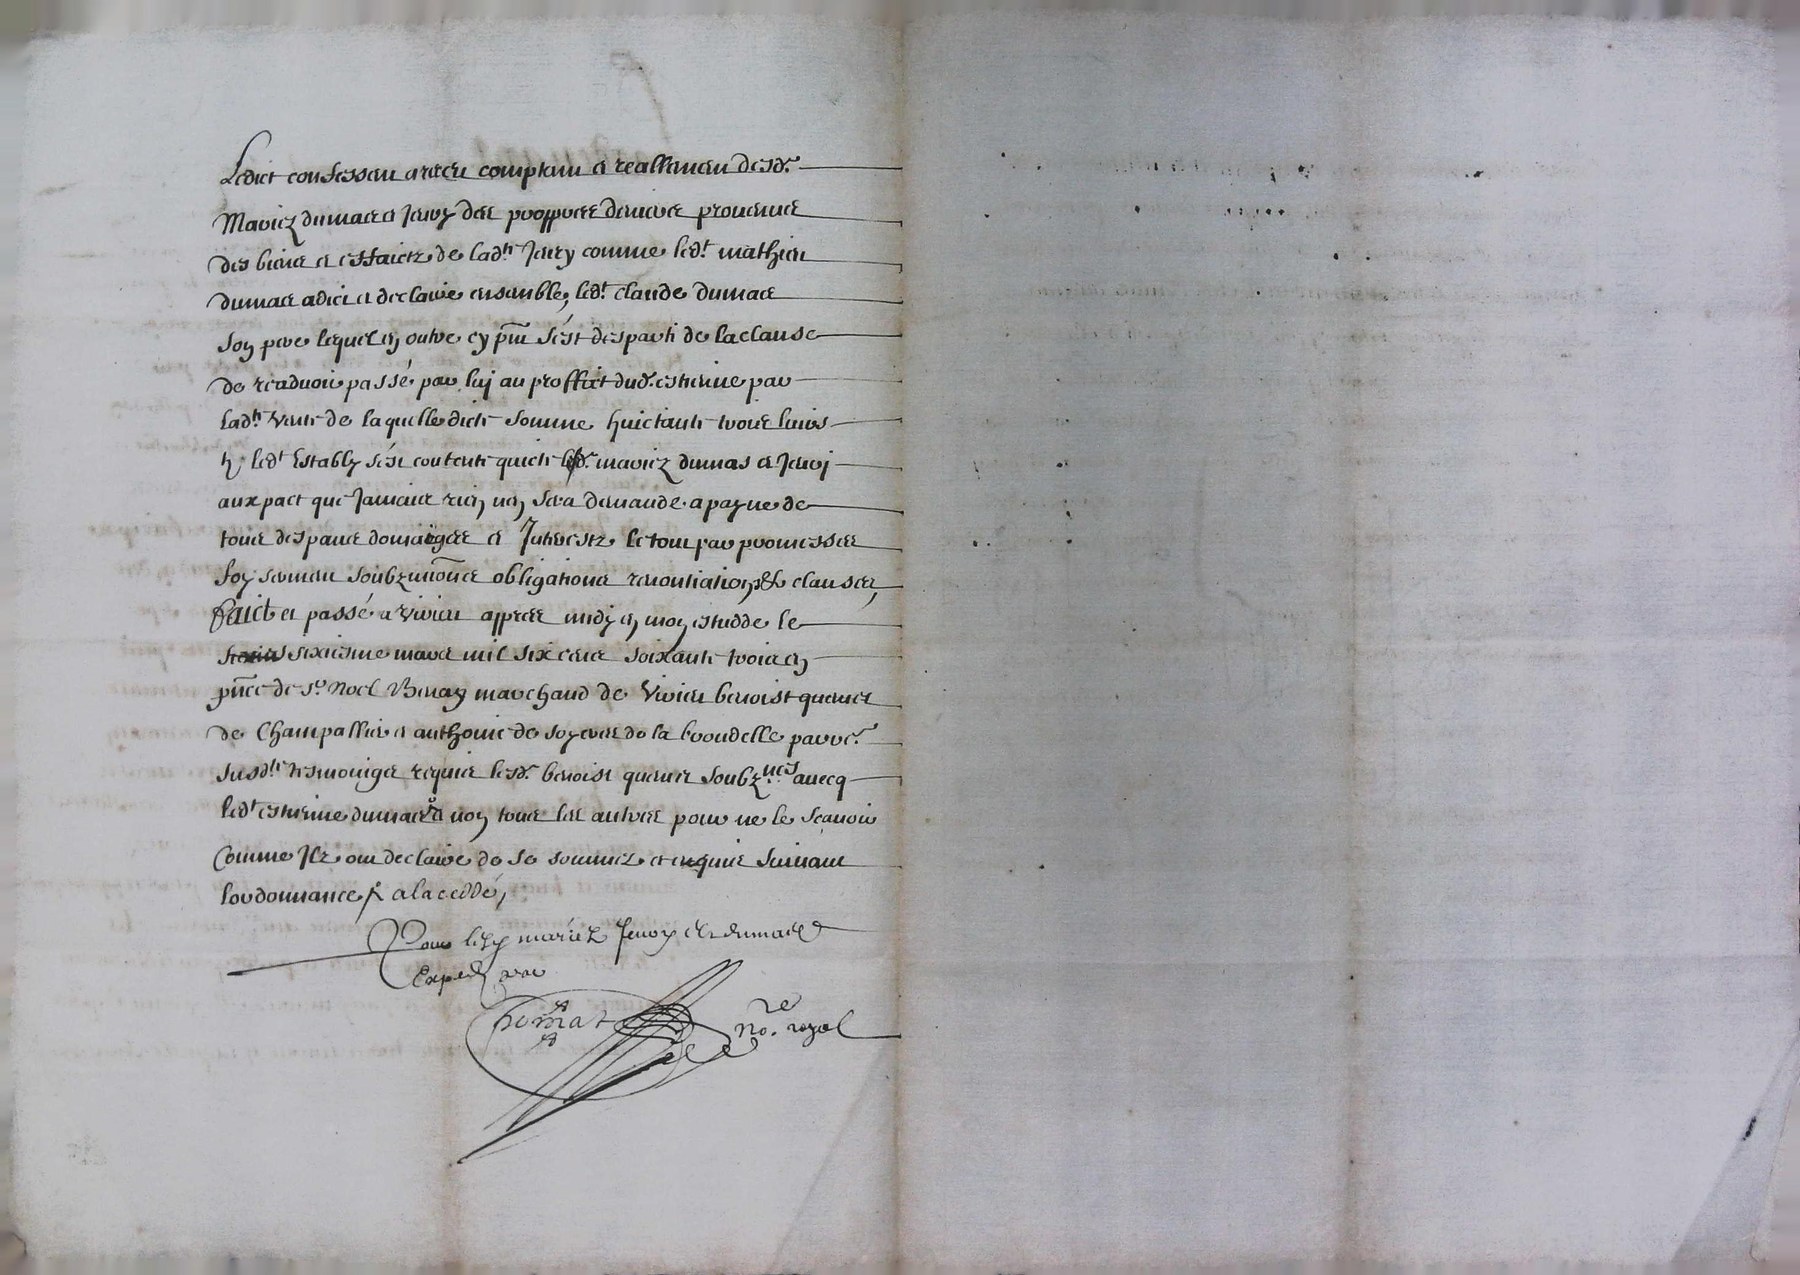 Ledict confessen avoir eu comptant et reallemen desd.
Mariez dumas et Jervy des propres deniers provenus
des biens et effaictz de lad.te Jervy comme led.t mathieu
dumas a dict et declaire ensemble, led.t claude dumas
son pere lequel en outre cy pnt s'est desparti de la clause
de passé par luj au proffict dud. esterine par
lad.te vente de laquelle dicte somme huictante trois livres
led.t Estably s'est contenté quicté lesd. mariez dumas et Jervj
aux pact que Jamais rien n'en sera demande a payne de
tous despans domaiges et Interestz le tout par promesses
foy sermen soubzmions obligations renontiations & clauses,
Faict et passé a Vivien appres midy en mon estudde le
sixiesme mars mil six cens soixante trois en
pnce de s.r Noel marchand de Vivien benoist
de Champallier et anthoine de de la parre.
susd.te tesmoinges requis lesd. benoist soubz.nes avecq
led.t esterine dumas et non tous les autres pour ne le scavoir
Comme Ilz ont declaire de ce sommez et enquis suivant
l'ordonnance a la cedde,
Pour lesd mariez Jervy et dumas
Exped
Thomas
No.re royal